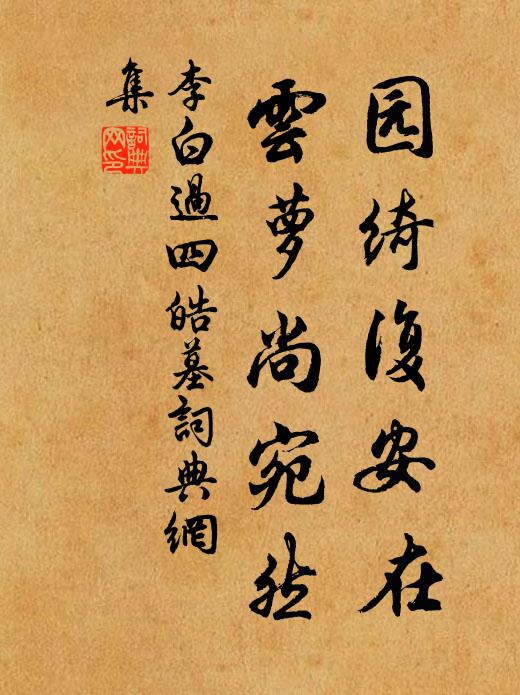 园绮復安在
雲萝尚宛然
李白過四皓墓詞典網
集
詞典
网印